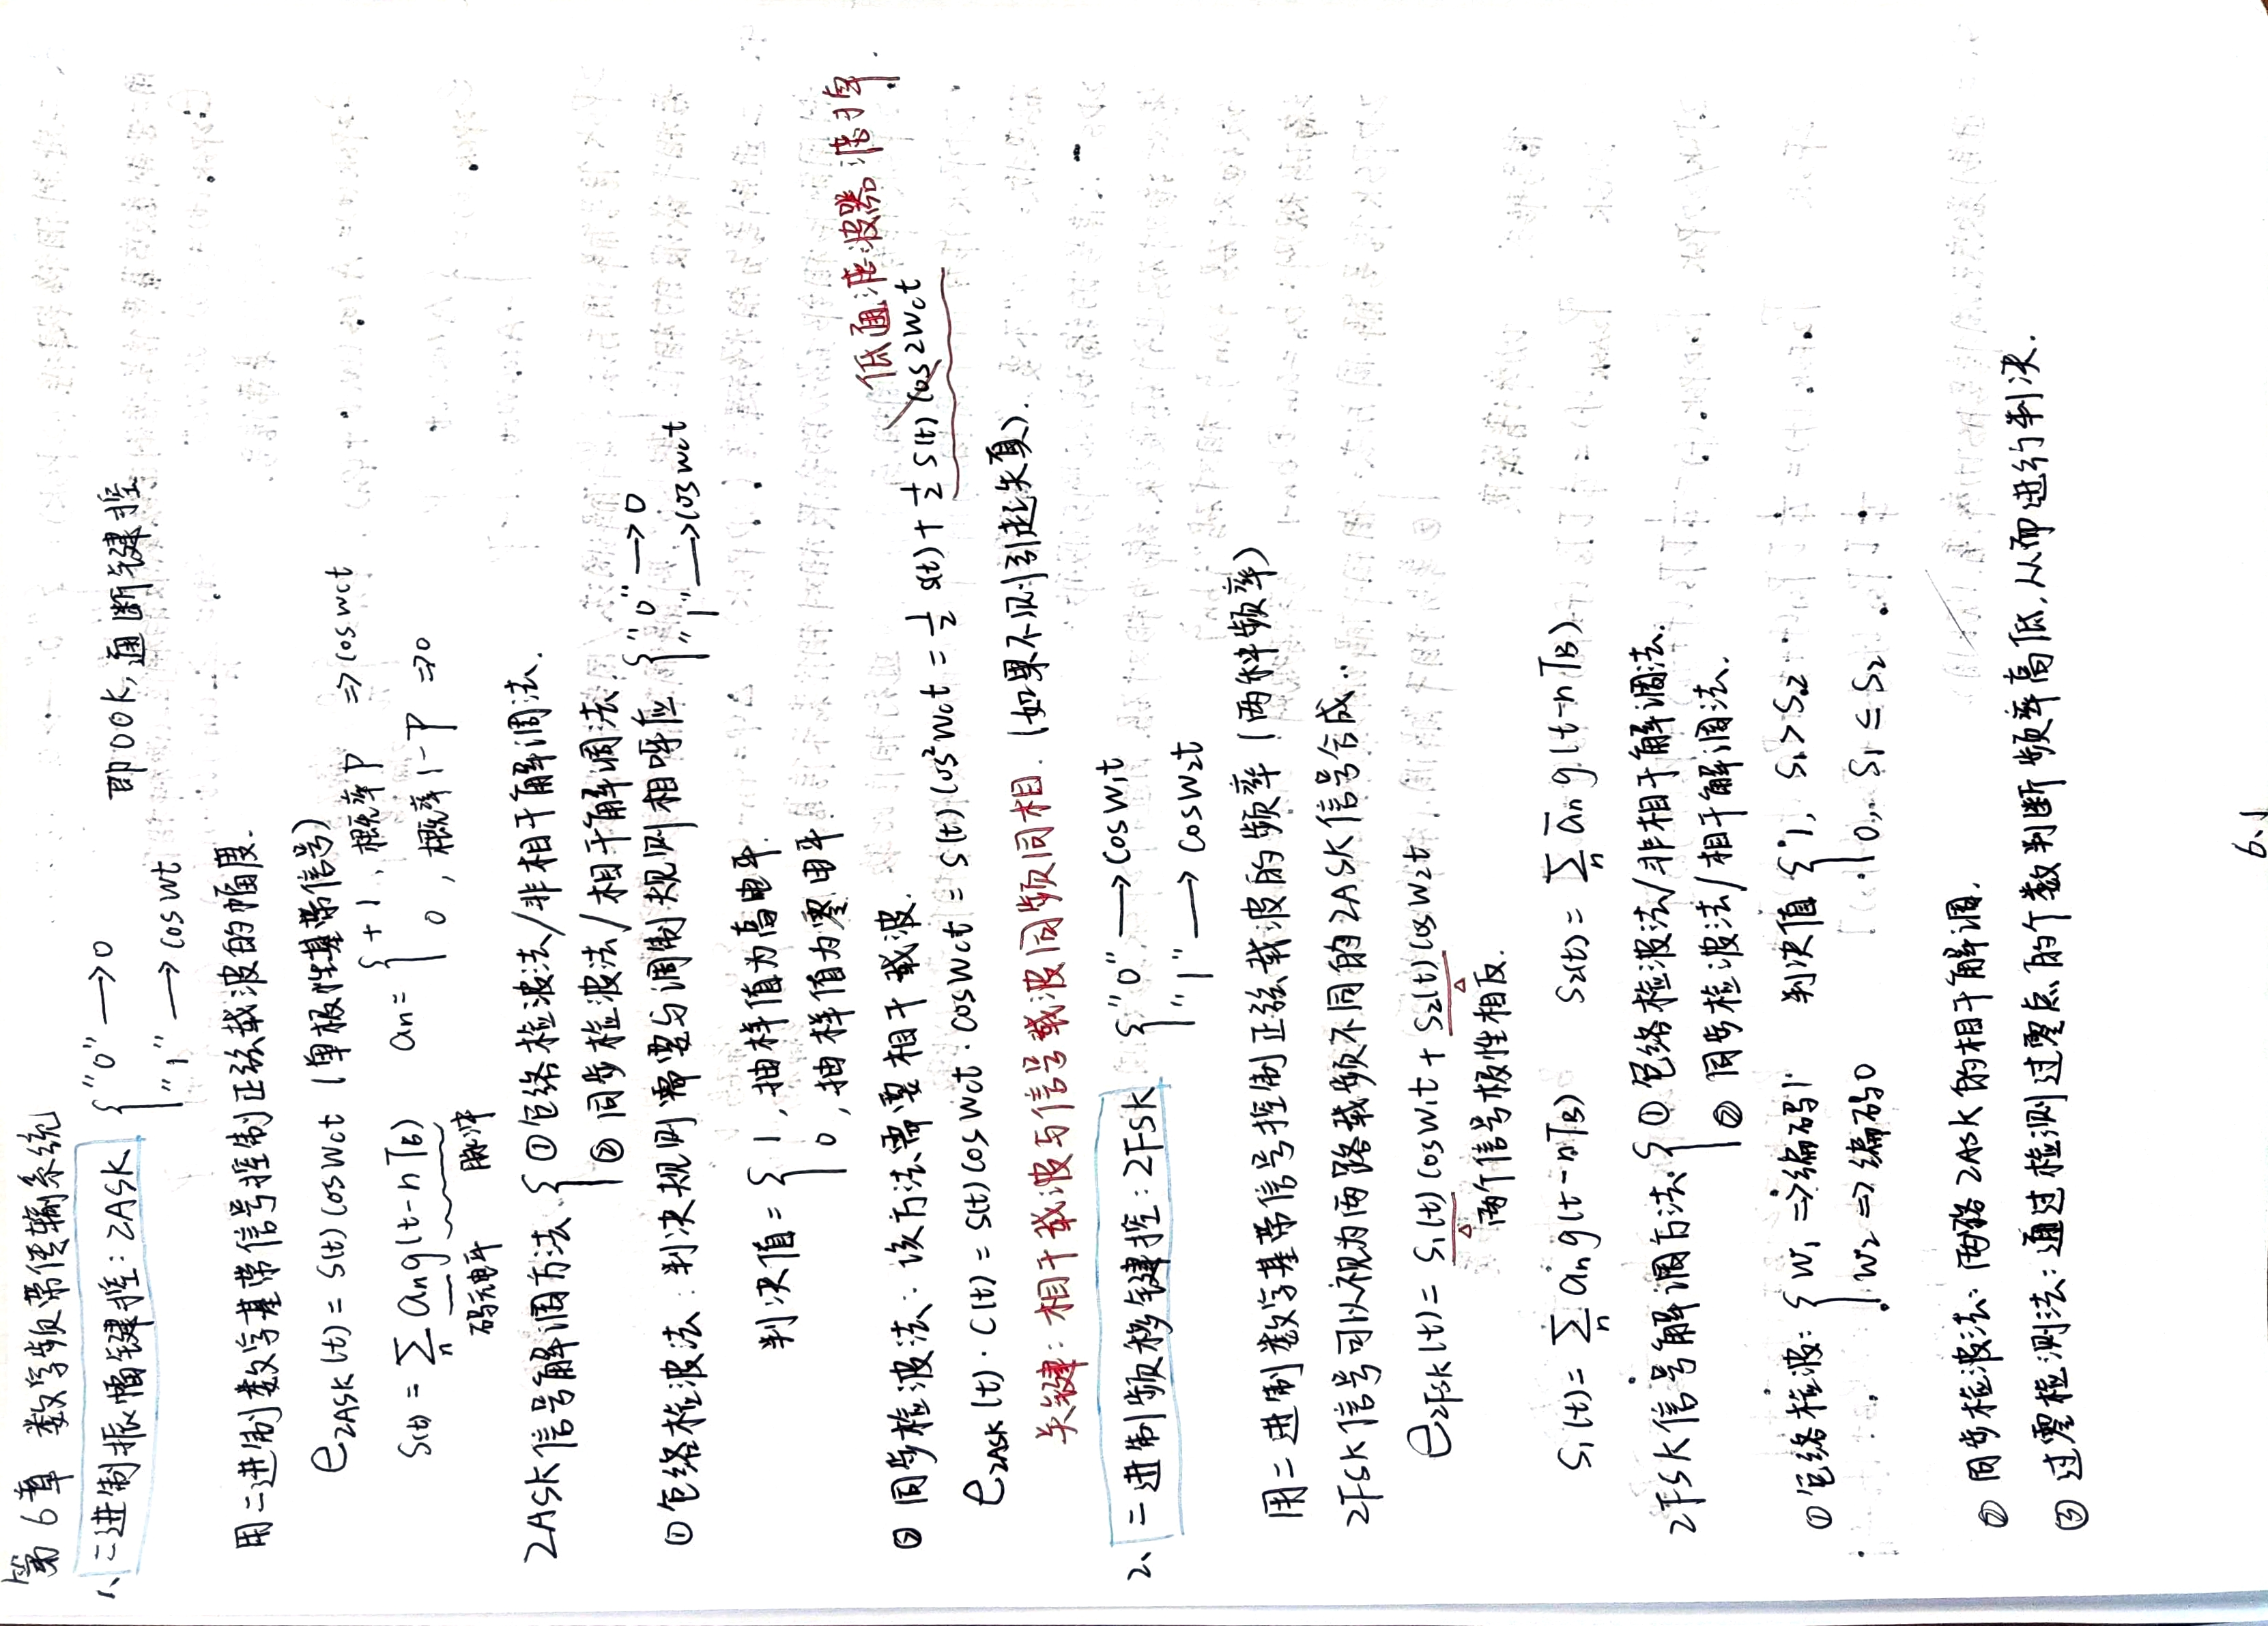 第6章 数字频带传输系统
1、二进制振幅键控：2ASK { "0" → 0 即OOK，通断键控
"1" → cos wt
用二进制数字基带信号控制正弦载波的幅度.
e2ASK(t) = s(t) cos wct (单极性基带信号)
s(t) = Σn an g(t-nTB) an = { +1，概率P ⇒ cos wct
0，概率1-P ⇒ 0
码元电平 脉冲
2ASK信号解调方法 { ①包络检波法/非相干解调法.
②同步检波法/相干解调法.
①包络检波法：判决规则需要与调制规则相呼应 { "0" → 0
"1" → cos wct
判决值 = { 1，抽样值为高电平.
0，抽样值为零电平.
低通滤波器滤掉.
②同步检波法：该方法需要相干载波.
e2ASK(t)·c(t) = s(t) cos wct · cos wct = s(t) cos²wct = 1/2 s(t) + 1/2 s(t) cos 2wct
关键：相干载波与信号载波同频同相. (如果不则引起失真).
2、二进制频移键控：2FSK { "0" → cos w1t
"1" → cos w2t
用二进制数字基带信号控制正弦载波的频率(两种频率)
2FSK信号可以视为两路载频不同的2ASK信号合成.
e2FSK(t) = s1(t) cos w1t + s2(t) cos w2t
两个信号极性相反.
s1(t) = Σn an g(t-nTB) s2(t) = Σn a̅n g(t-nTB)
2FSK信号解调方法 { ①包络检波法/非相干解调法.
②同步检波法/相干解调法.
①包络检波：{ w1 ⇒ 编码1 判决值 { 1，S1 > S2
w2 ⇒ 编码0 0，S1 ≤ S2
②同步检波法：两路2ASK的相干解调.
③过零检测法：通过检测过零点的个数判断频率高低，从而进行判决.
6.1